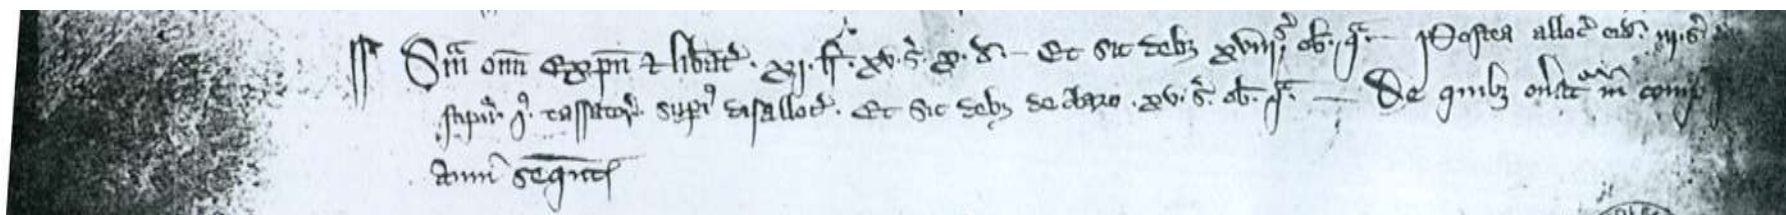 Sm̄a om̄ expn̄ & libat'. xj. li. xv. s'. x. d'. – Et sic deb3 xviij. s'. ob'. q̄. – Postea alloc' ei d'. iij. s'
stipn̄. j°. cassator'. supi⁹ disalloc'. Et sic deb3 de claro. xv. s'. ob'. q̄. – De quib3 on̄at in comp
anni sequēt